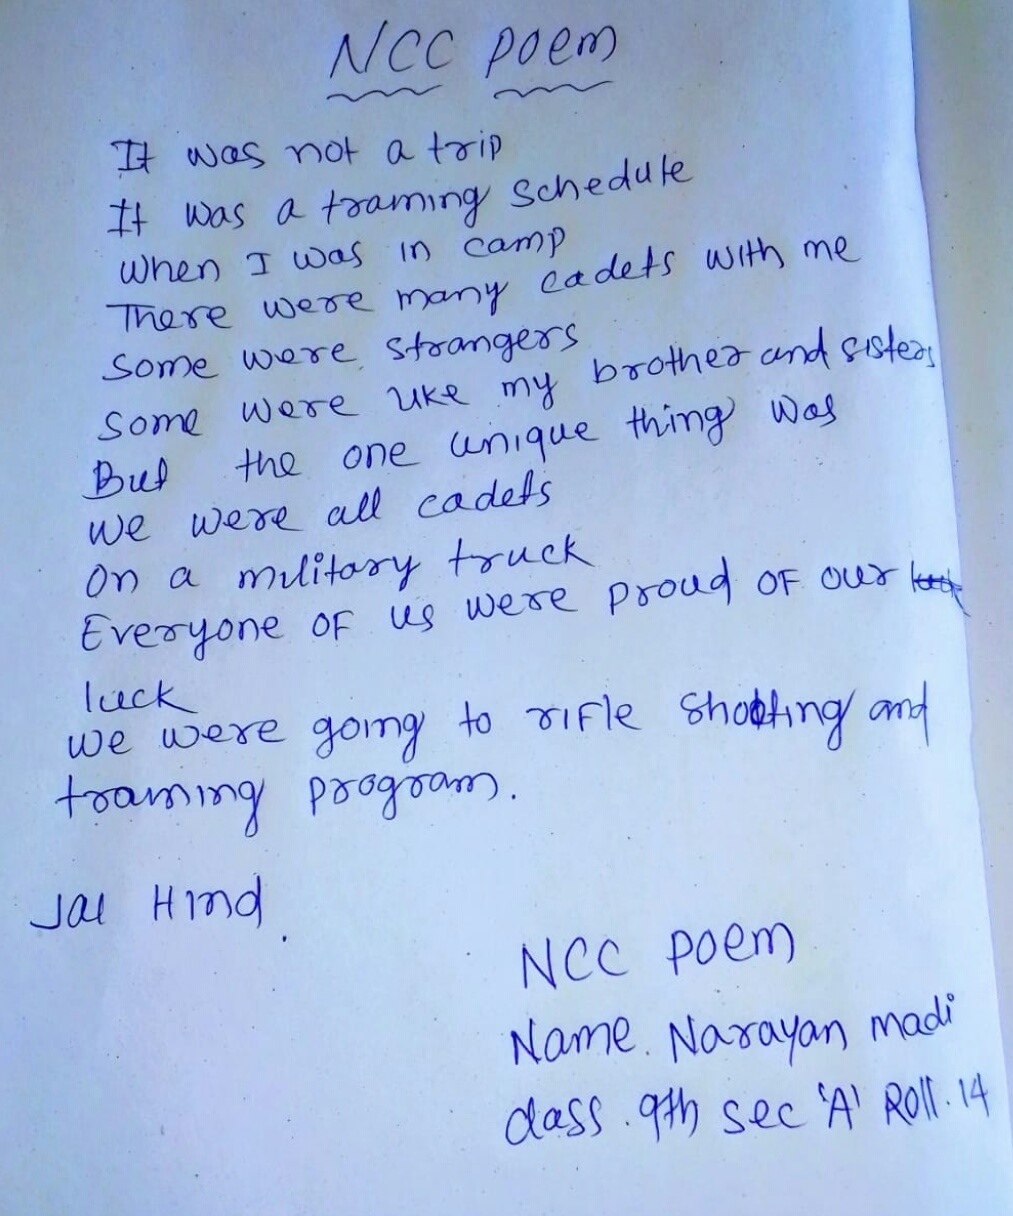 NCC poem
It was not a trip
It was a training schedule
when I was in camp
There were many cadets with me
some were strangers
some were like my brother and sisters
But the one unique thing was
we were all cadets
on a military truck
Everyone of us were proud of our luck
luck
we were going to rifle shooting and
training program.
Jai Hind.
NCC poem
Name. Narayan madi
class. 9th sec 'A' Roll. 14